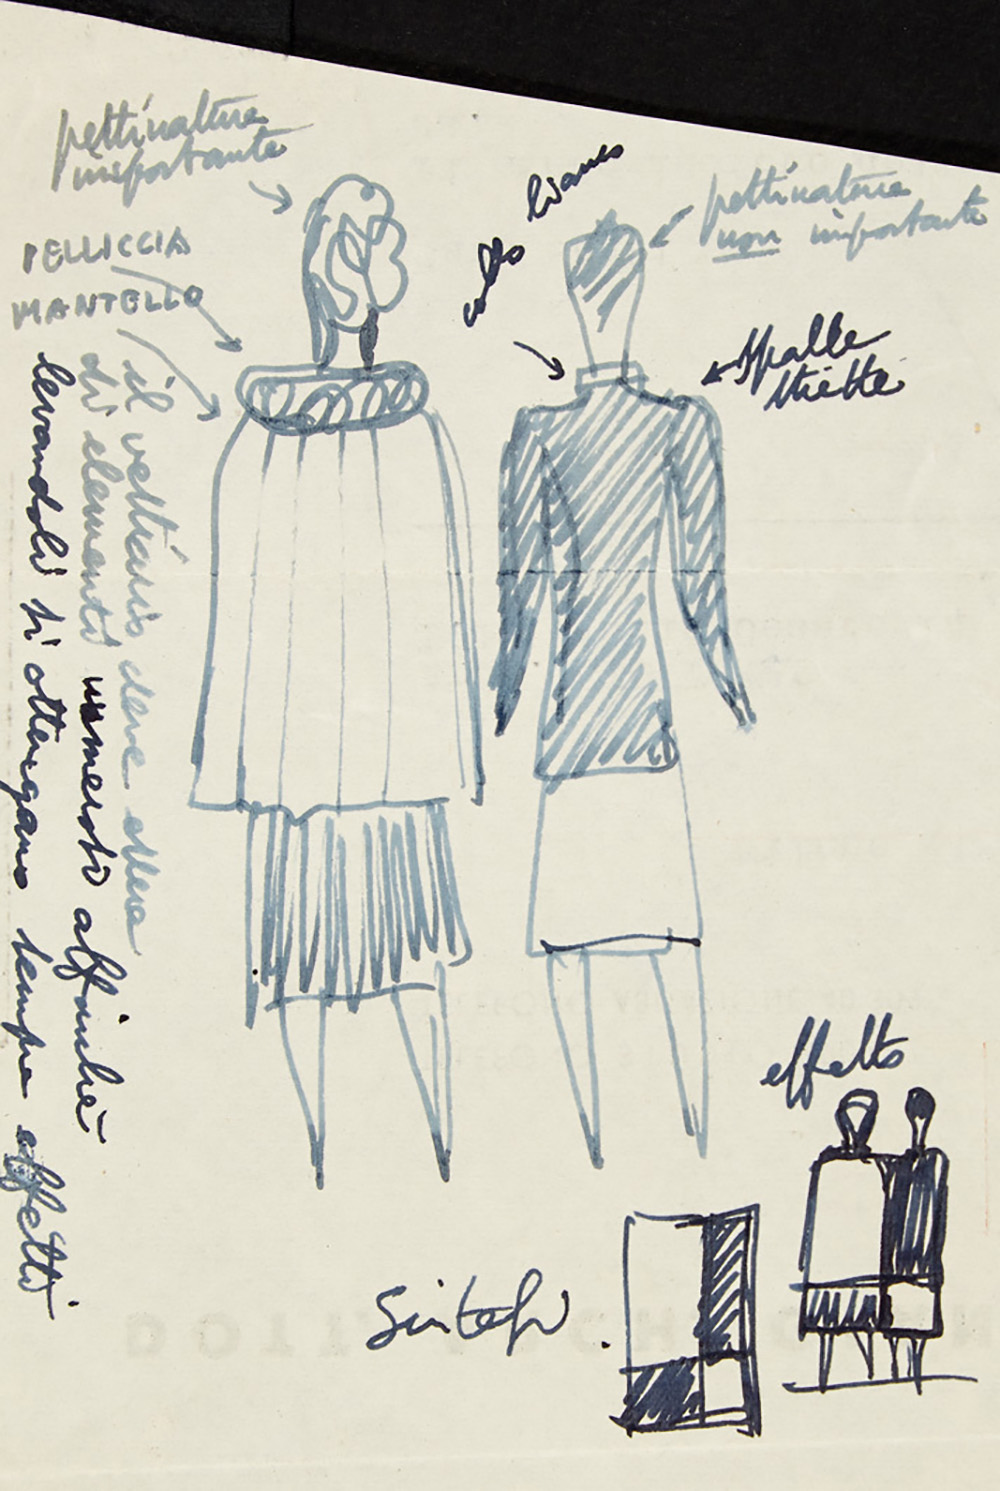 pettinatura
importante
PELLICCIA
MANTELLO
collo bianco
pettinatura
non importante
spalle
strette
il vestiario deve essere
di elementi numerosi affinchè
levandoli si ottengano sempre effetti
effetto
Sintesi
DOTT. ARCH.